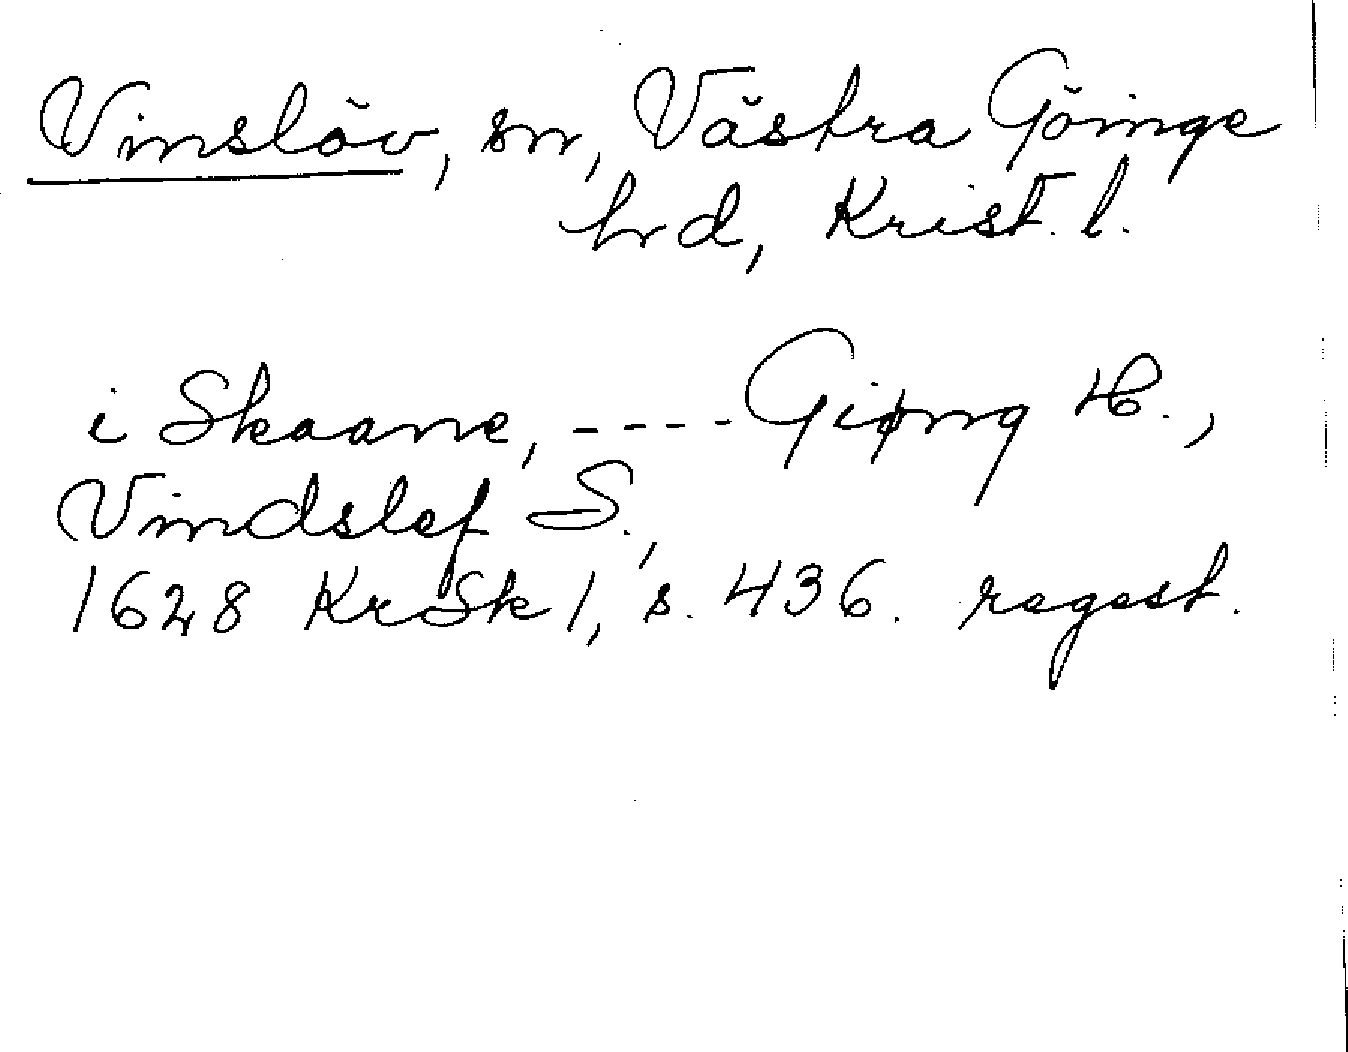 Vinslöv, sn, Västra Göinge
hrd, Krist. l.
i Skaane, ---- Giøng H.,
Vindslef S.,
1628 KrSk 1, s. 436. regest.